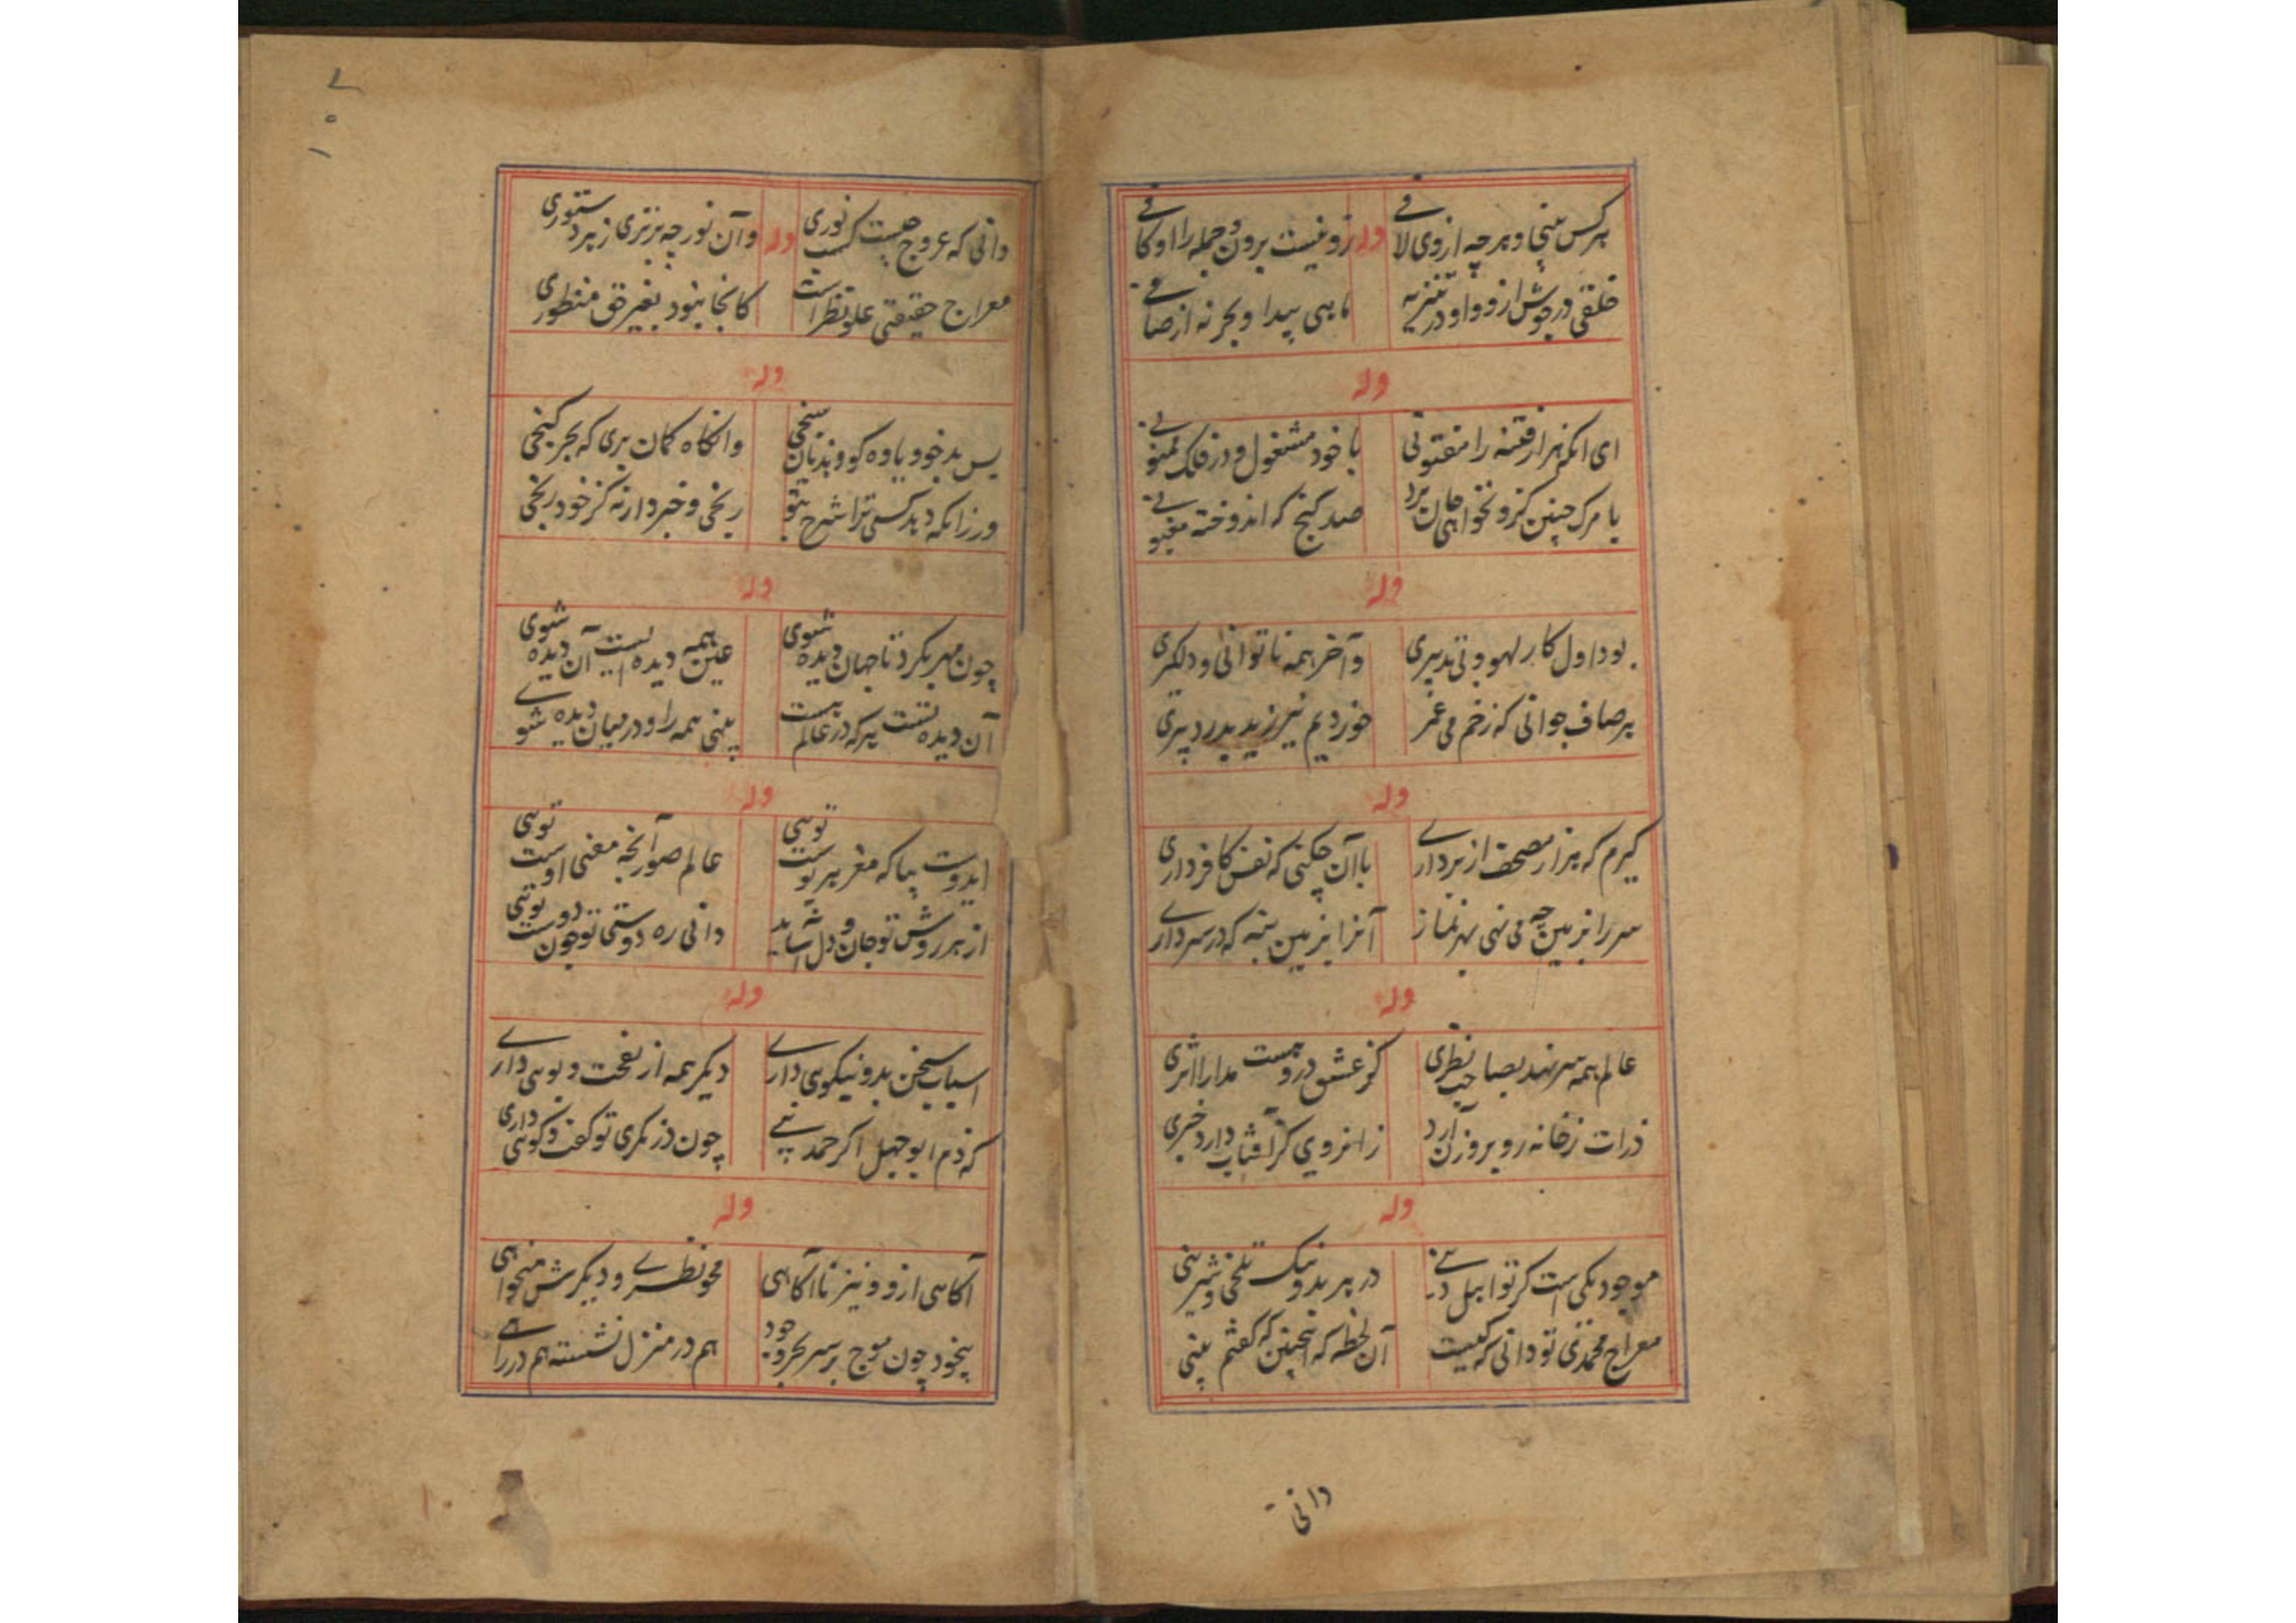 هرکس بینی و هرچه ازوی لافی
وله
زو نیست برون و جمله را او کافی
خلقی در جوش ازو و او در تنزیه
ماهی پیدا و بحر نه از صافی
وله
ای آنکه هزار فتنه را مفتونی
با خود مشغول و در فلک
با مرک چنین کزو نخواهی جان برد
صد کنج که اندوخته
وله
بود اول کار لهو و بی تدبیری
و آخر همه ناتوانی و دلکیری
هر صاف جوانی که زخم می عمر
خوردیم نیرزید بدرد پیری
وله
کیرم که هزار مصحف از بر داری
با آن چکنی که نفس کافر داری
سر را بزمین چه می نهی بهر نماز
آنرا بزمین بنه که در سر داری
وله
عالم همه سر نهد بصاحب نظری
کز عشق دروست مدارا اثری
ذرات زخانه رو بروزن آرد
زانروی کز آفتاب دارد خبری
وله
موجود یکی است کر تو ابیل
در هر بد و نیک تلخی و شیرینی
معراج محمدی تو دانی که کیست
آن لحظه که اینچنین که کفتم بینی
دانی
۱۰۲
دانی که عروج چیست کسب نوری
وله
وآن نور چه برتری زهر دستوری
معراج حقیقتی علو نظر است
کانجا نبود بغیر حق منظوری
وله
بس بد خو و یاوه کو و
وانکاه کمان بری که بحر کنجی
ور زانکه دهد کسی ترا شرح بتو
رنجی و خبردار نه کز خود رنجی
وله
چون مهر بکرد تا جهان دیده شوی
عین همه دیده ایست آن دیده شوی
آن دیده تست هرکه در عالم هست
بینی همه را و در میان دیده شوی
وله
ایدوست بیا که مغز هر پوست توئی
عالم صور آنچه معنی اوست توئی
از هر روش تو جان و دل آساید
دانی ره دوستی تو چون دوست توئی
وله
اسباب سخن بد و نیکوی داری
دیکر همه از نفخت و بوئی داری
که ذم ابوجهل اکر حمد نبی
چون در نکری تو کفت و کوئی داری
وله
آکاهی ازو و نیز ناآکاهی
محو نظری و دیکرش میخواهی
بیخود چون موج بر سر بحر وجود
هم در منزل نشسته هم در راهی